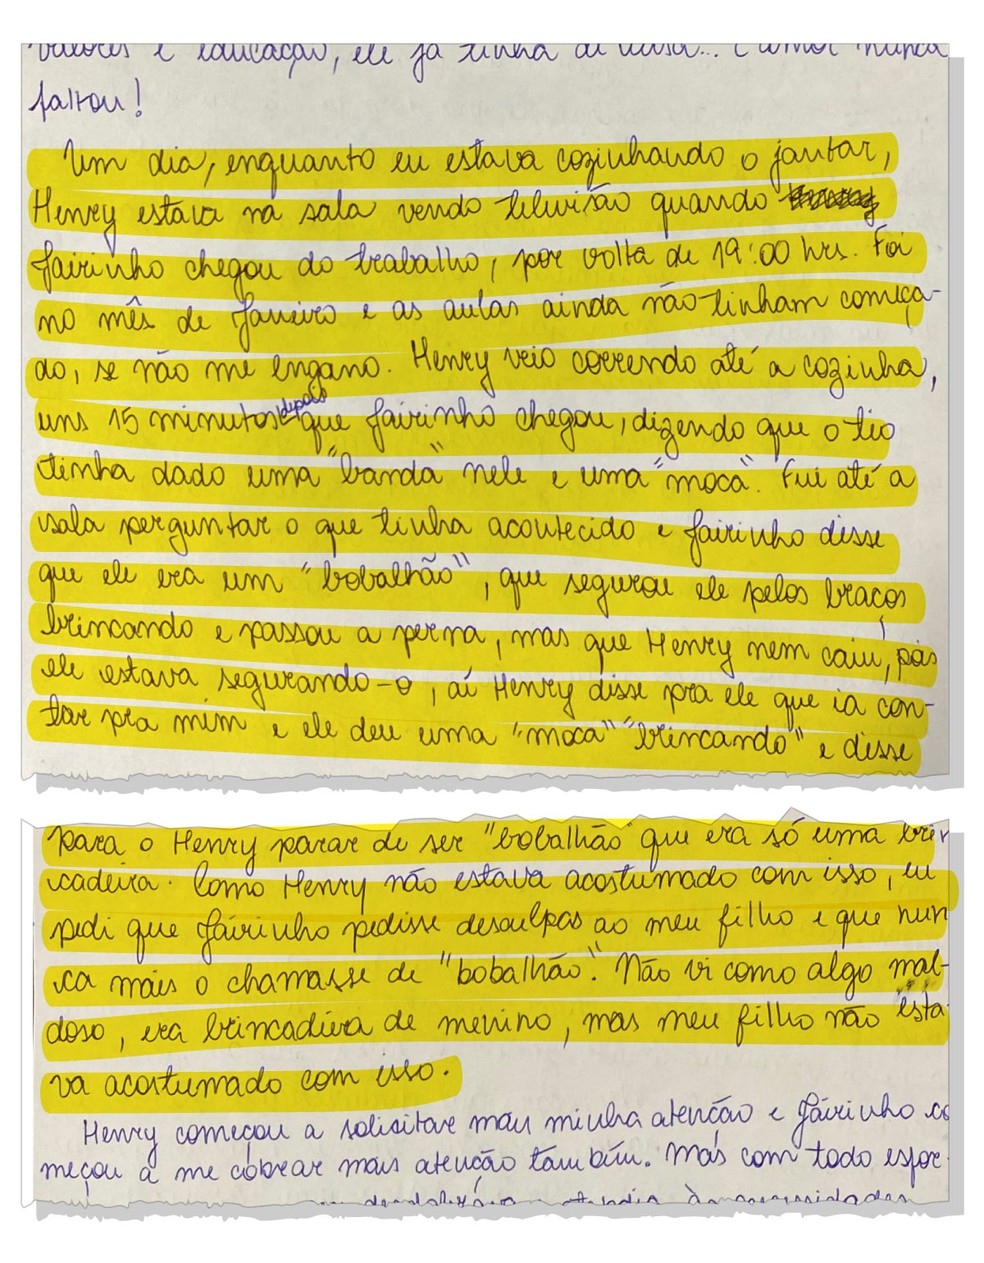 valores e educação, ele já tinha de nossa... E amor nunca
faltou!
Um dia, enquanto eu estava cozinhando o jantar,
Henry estava na sala vendo televisão quando
Jairinho chegou do trabalho, por volta de 19:00 hrs. Foi
no mês de Janeiro e as aulas ainda não tinham começa-
do, se não me engano. Henry veio correndo até a cozinha,
uns 15 minutos depois que Jairinho chegou, dizendo que o tio
tinha dado uma "banda" nele e uma "moca". Fui até a
sala perguntar o que tinha acontecido e Jairinho disse
que ele era um "bobalhão", que segurou ele pelos braços
brincando e passou a perna, mas que Henry nem caiu, pois
ele estava segurando-o, aí Henry disse pra ele que ia con-
tar pra mim e ele deu uma "moca" "brincando" e disse
para o Henry parar de ser "bobalhão" que era só uma brin
cadeira. Como Henry não estava acostumado com isso, eu
pedi que Jairinho pedisse desculpas ao meu filho e que nun
ca mais o chamasse de "bobalhão". Não vi como algo mal-
doso, era brincadeira de menino, mas meu filho não esta
va acostumado com isso.
Henry começou a solicitar mais minha atenção e Jairinho co
meçou a me cobrar mais atenção também. Mas com todo esfor-
atendia às necessidades